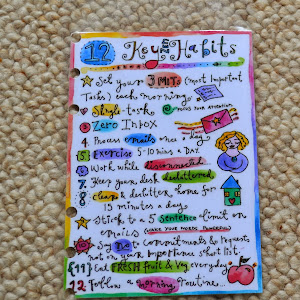 12 Key ZEN Habits
Set your 3 MITs (most Important
Tasks) each morning.
Single-task FOCUS YOUR ATTENTION
3 Zero Inbox
4 Process emails once a day
5 Exercise 5-10 mins a DAY
Work while disconnected
7. Keep your desk decluttered
8 clean & declutter home for
15 minutes a day
Stick to a 5 sentence limit on
emails (MAKE YOUR WORDS POWERFUL)
Say No to commitments & requests
not on your importance short list.
{11} Eat FRESH Fruit & Veg everyday
12 Follow a morning Routine...